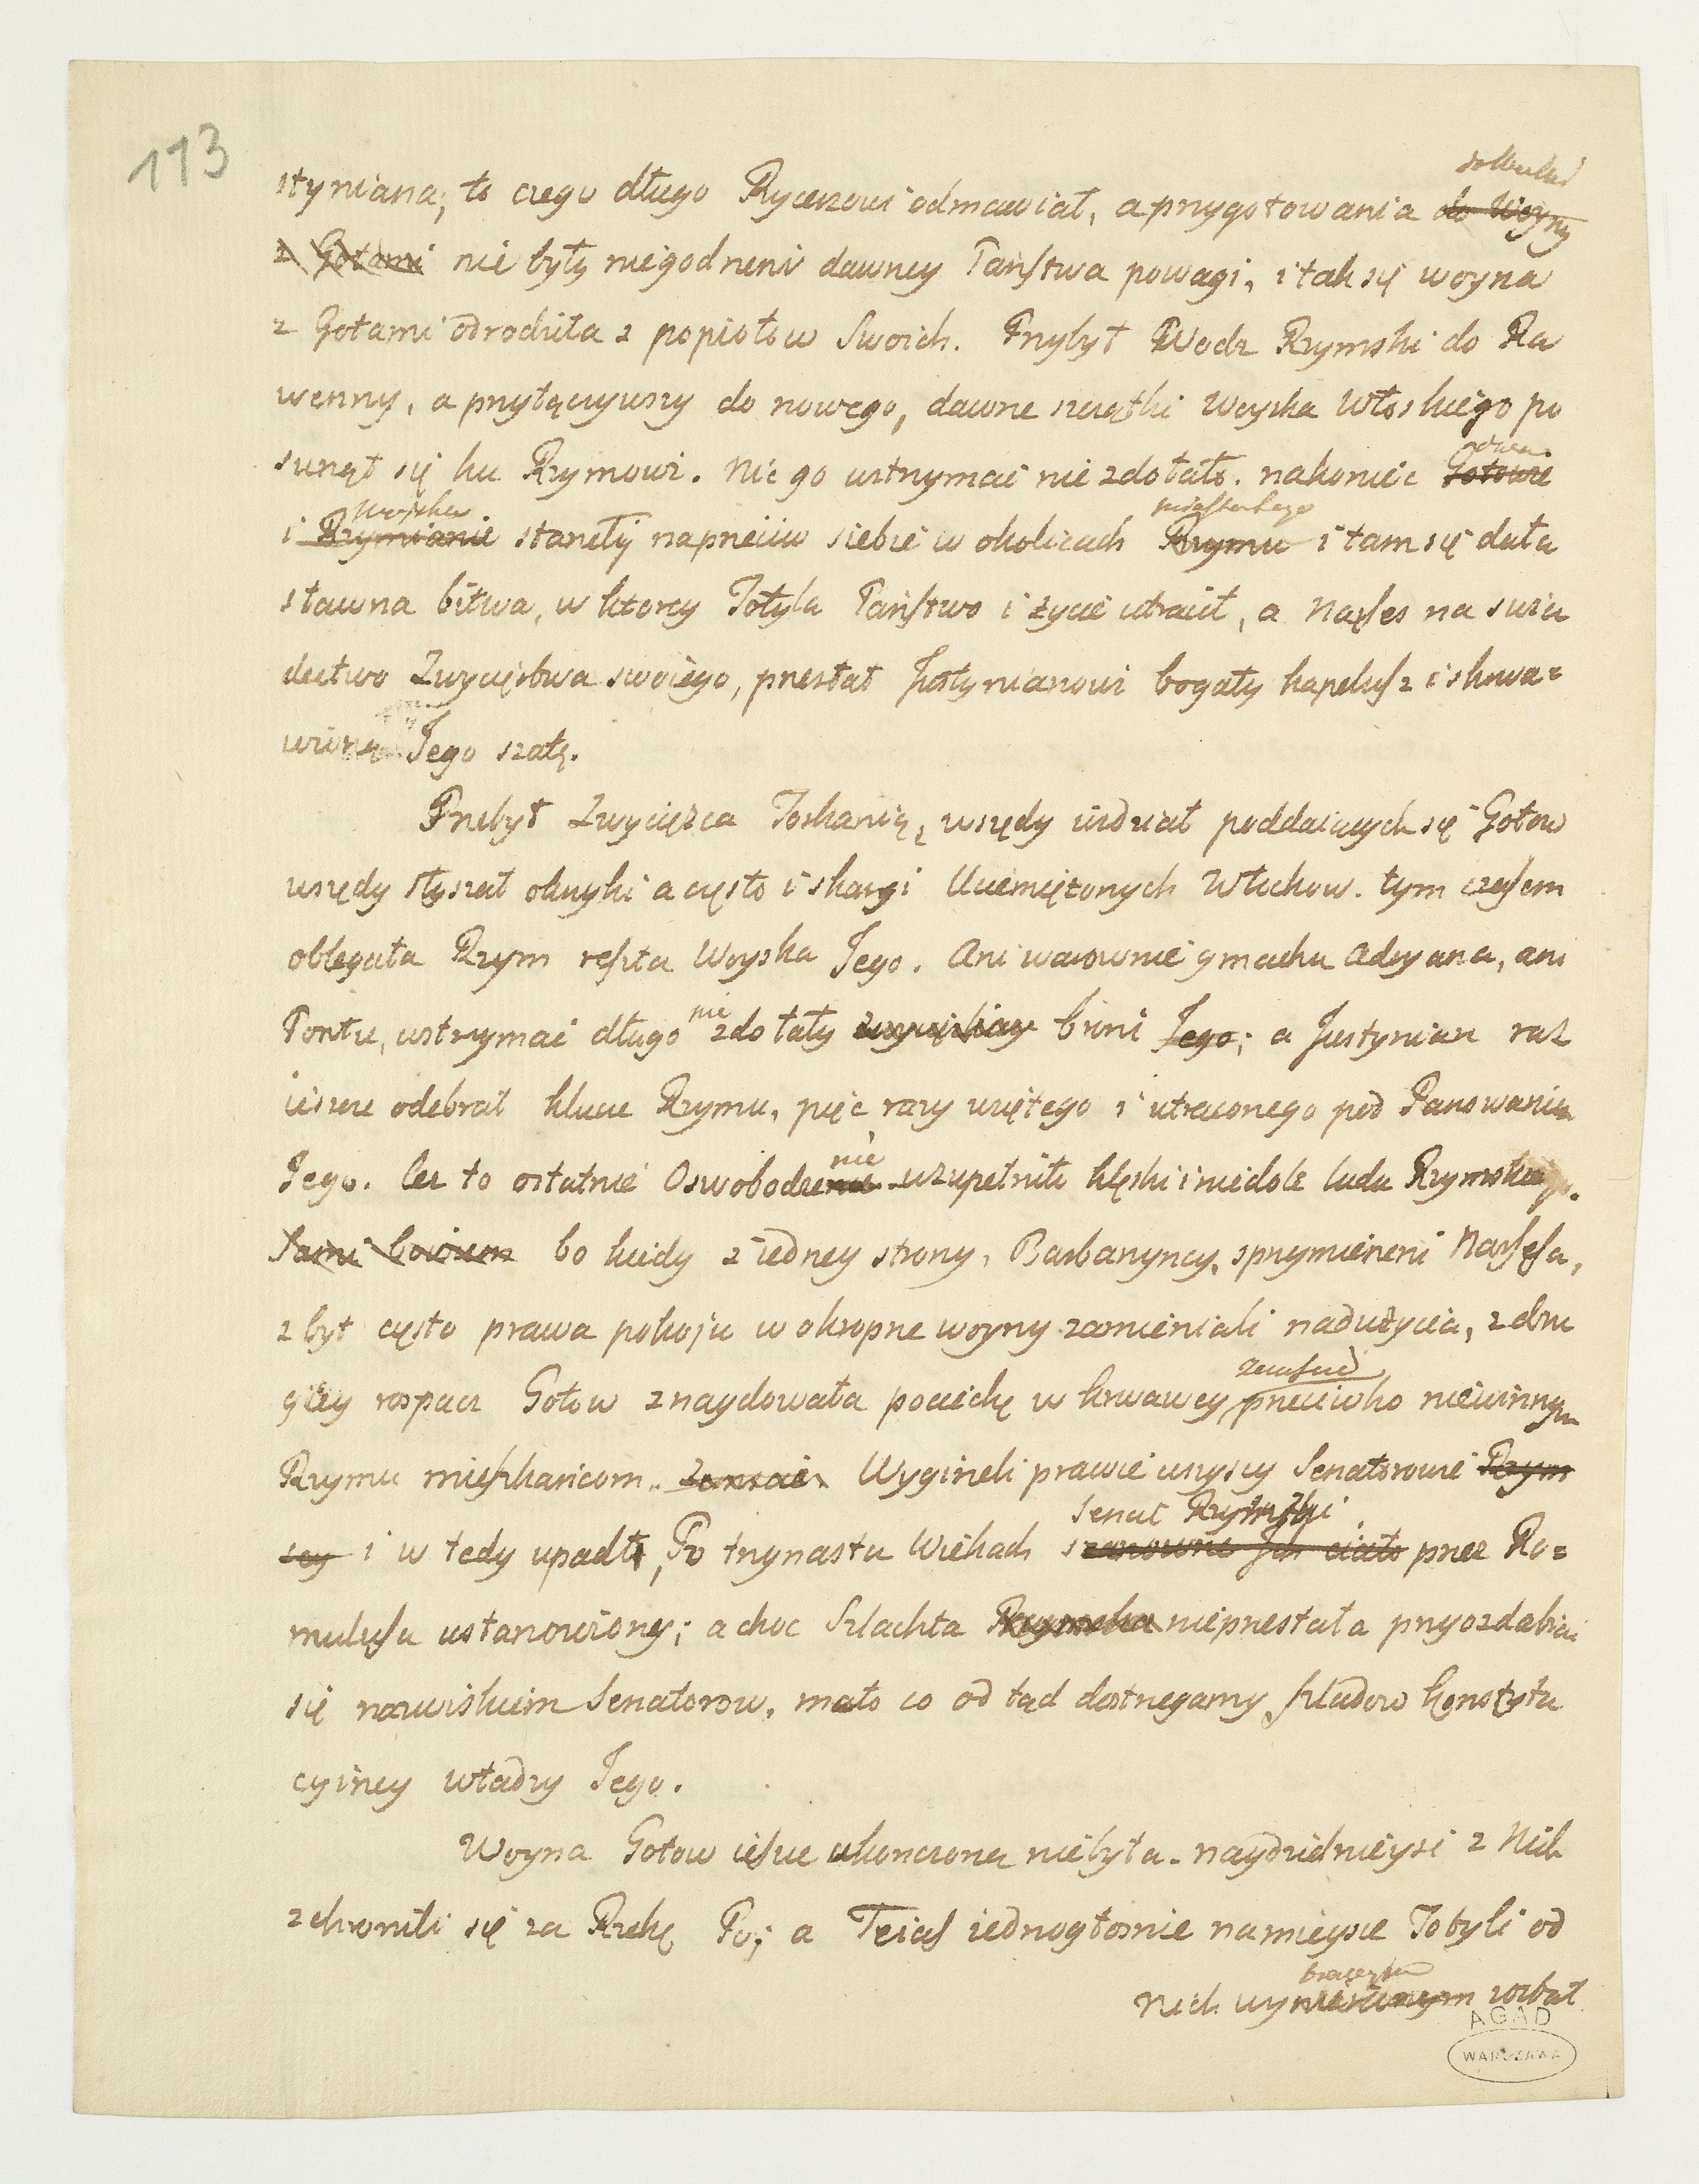 113
styniana, to czego długo Rycerzowi odmawiał, a przygotowania do Woyny
z Gotami nie były niegodnemi dawney Państwa powagi, i tak się woyna
z Gotami odrodziła z popiołow Swoich. Przybył Wodz Rzymski do Ra
wenny, a przyłączywszy do nowego, dawne szczątki Woyska Włoskiego po
sunął się ku Rzymowi. Nic go wstrzymać nie zdołało. nakoniec Gotowie
woyska
i Rzymianie stanęły naprzeciw siebie w okolicach Rzymu i tam się dała
sławna bitwa, w ktorey Totyla Państwo i życie utracił, a Narses na swia
dectwo Zwycięstwa swoiego, przesłał Justynianowi bogaty kapelusz i skrwa=
wioną Jego szatę.
Przebył Zwycięzca Toskanią, wszędy widział poddaiących się Gotow
wszędy słyszał okrzyki a często i skargi Uciemiężonych Włochow. tym czasem
oblegała Rzym reszta Woyska Jego. Ani warownie gmachu Adryana, ani
Portu, wstrzymać długo nie zdołały zwycięskiey broni Jego; a Justynian raz
ieszcze odebrał klucze Rzymu, pięc razy wziętego i utraconego pod Panowaniem
Jego. lecz to ostatnie Oswobodzenie uzupełniło klęski i niedole ludu Rzymskiego.
Sami bowiem bo kiedy z iedney strony, Barbarzyncy, sprzymierzeni Narsesa,
zbyt często prawa pokoju w okropne woyny zamieniali nadużycia, z dru
giey rospacz Gotow znaydowała pociechę w krwawey zemscie przeciwko niewinnym
Rzymu mieszkańcom. Zemscie. Wygineli prawie wszyscy Senatorowie Rzym
senat Rzymski
scy i w tedy upadł, Po trzynastu Wiekach szanowne Ich ciało przez Ro=
mulusa ustanowiony; a choc Szlachta Rzymska nieprzestała przyozdabiać
się nazwiskiem Senatorow, mało co od tąd dostrzegamy sladow konstytu
cyiney władzy Jego.
Woyna Gotow ieszcze ukonczona niebyła. naydzielnieysi z Nich
schronili się za Rzekę Po; a Teias iednogłosnie na mieysce Totyli od
nich wyniesionym został
AGAD
WARSZAWA